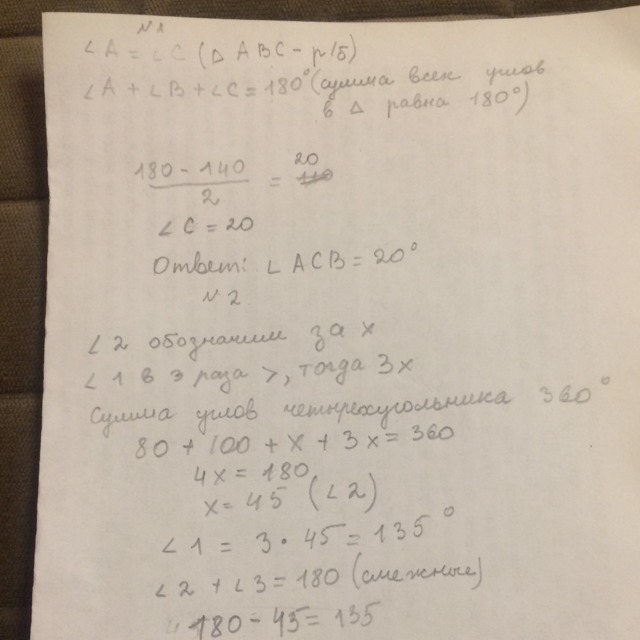 N1
∠A = ∠C (△ ABC - р/б)
∠A + ∠B + ∠C = 180° (сумма всех углов
в △ равна 180°)
180 - 140 / 2 = 20
∠C = 20
Ответ: ∠ACB = 20°
N 2
∠2 обозначим за x
∠1 в 3 раза >, тогда 3x
Сумма углов четырехугольника 360°
80 + 100 + x + 3x = 360
4x = 180
x = 45 (∠2)
∠1 = 3 · 45 = 135°
∠2 + ∠3 = 180 (смежные)
180 - 45 = 135